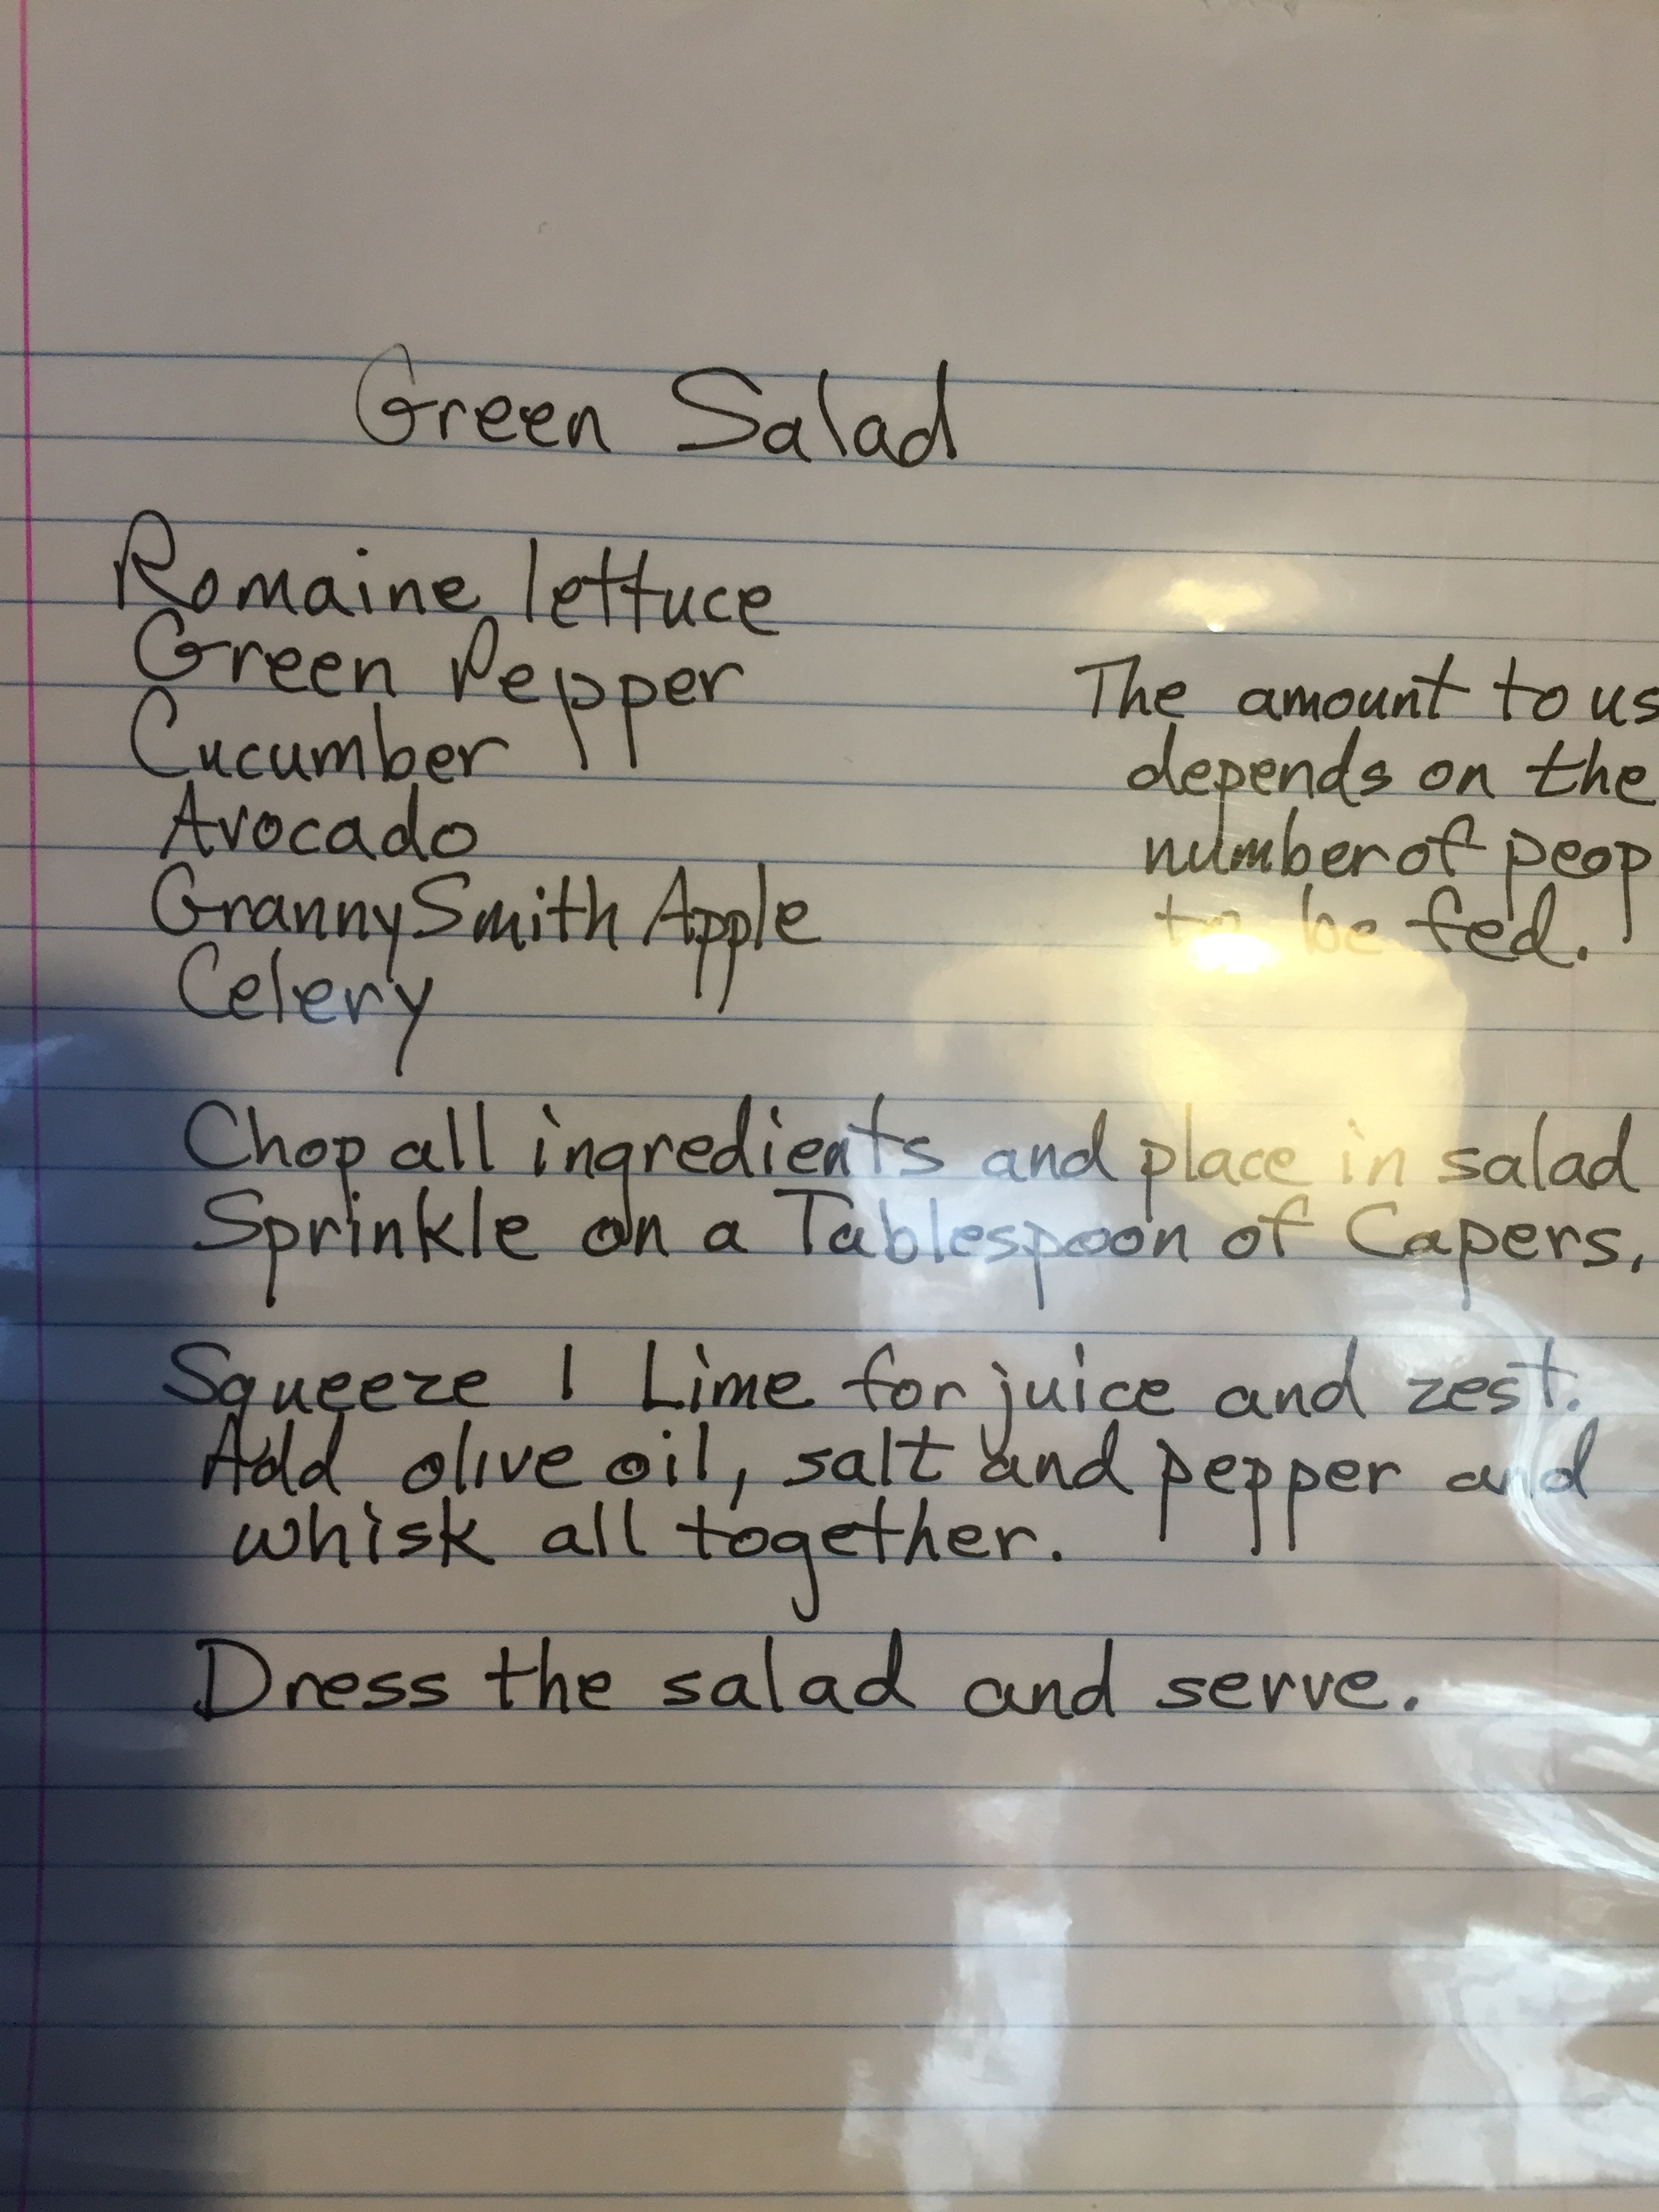 Green Salad
Romaine lettuce
Green Pepper
Cucumber
Avocado
Granny Smith Apple
Celery
The amount to us
depends on the
number of peop
to be fed.
Chop all ingredients and place in salad
Sprinkle on a Tablespoon of Capers.
Squeeze 1 Lime for juice and zest.
Add olive oil, salt and pepper and
whisk all together.
Dress the salad and serve.